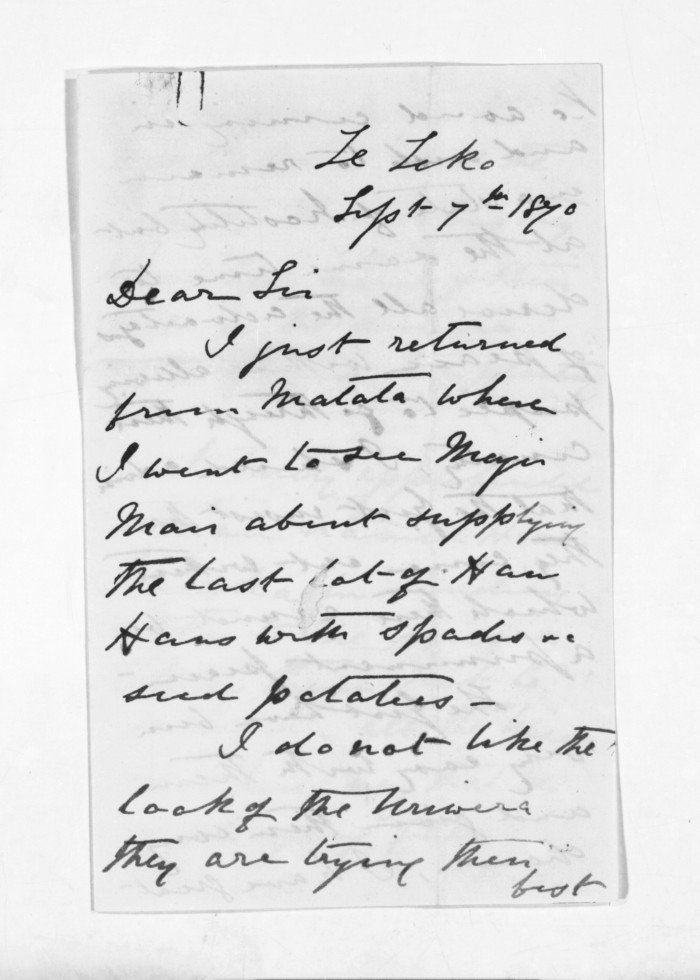 Te Teko
Sept 7th 1870
Dear Sir
I just returned
from Matata where
I went to see Major
Mair about supplying
the last lot of Hau
Haus with spades &c
seed potatoes -
I do not like the
look of the Uriwera
they are trying their
best